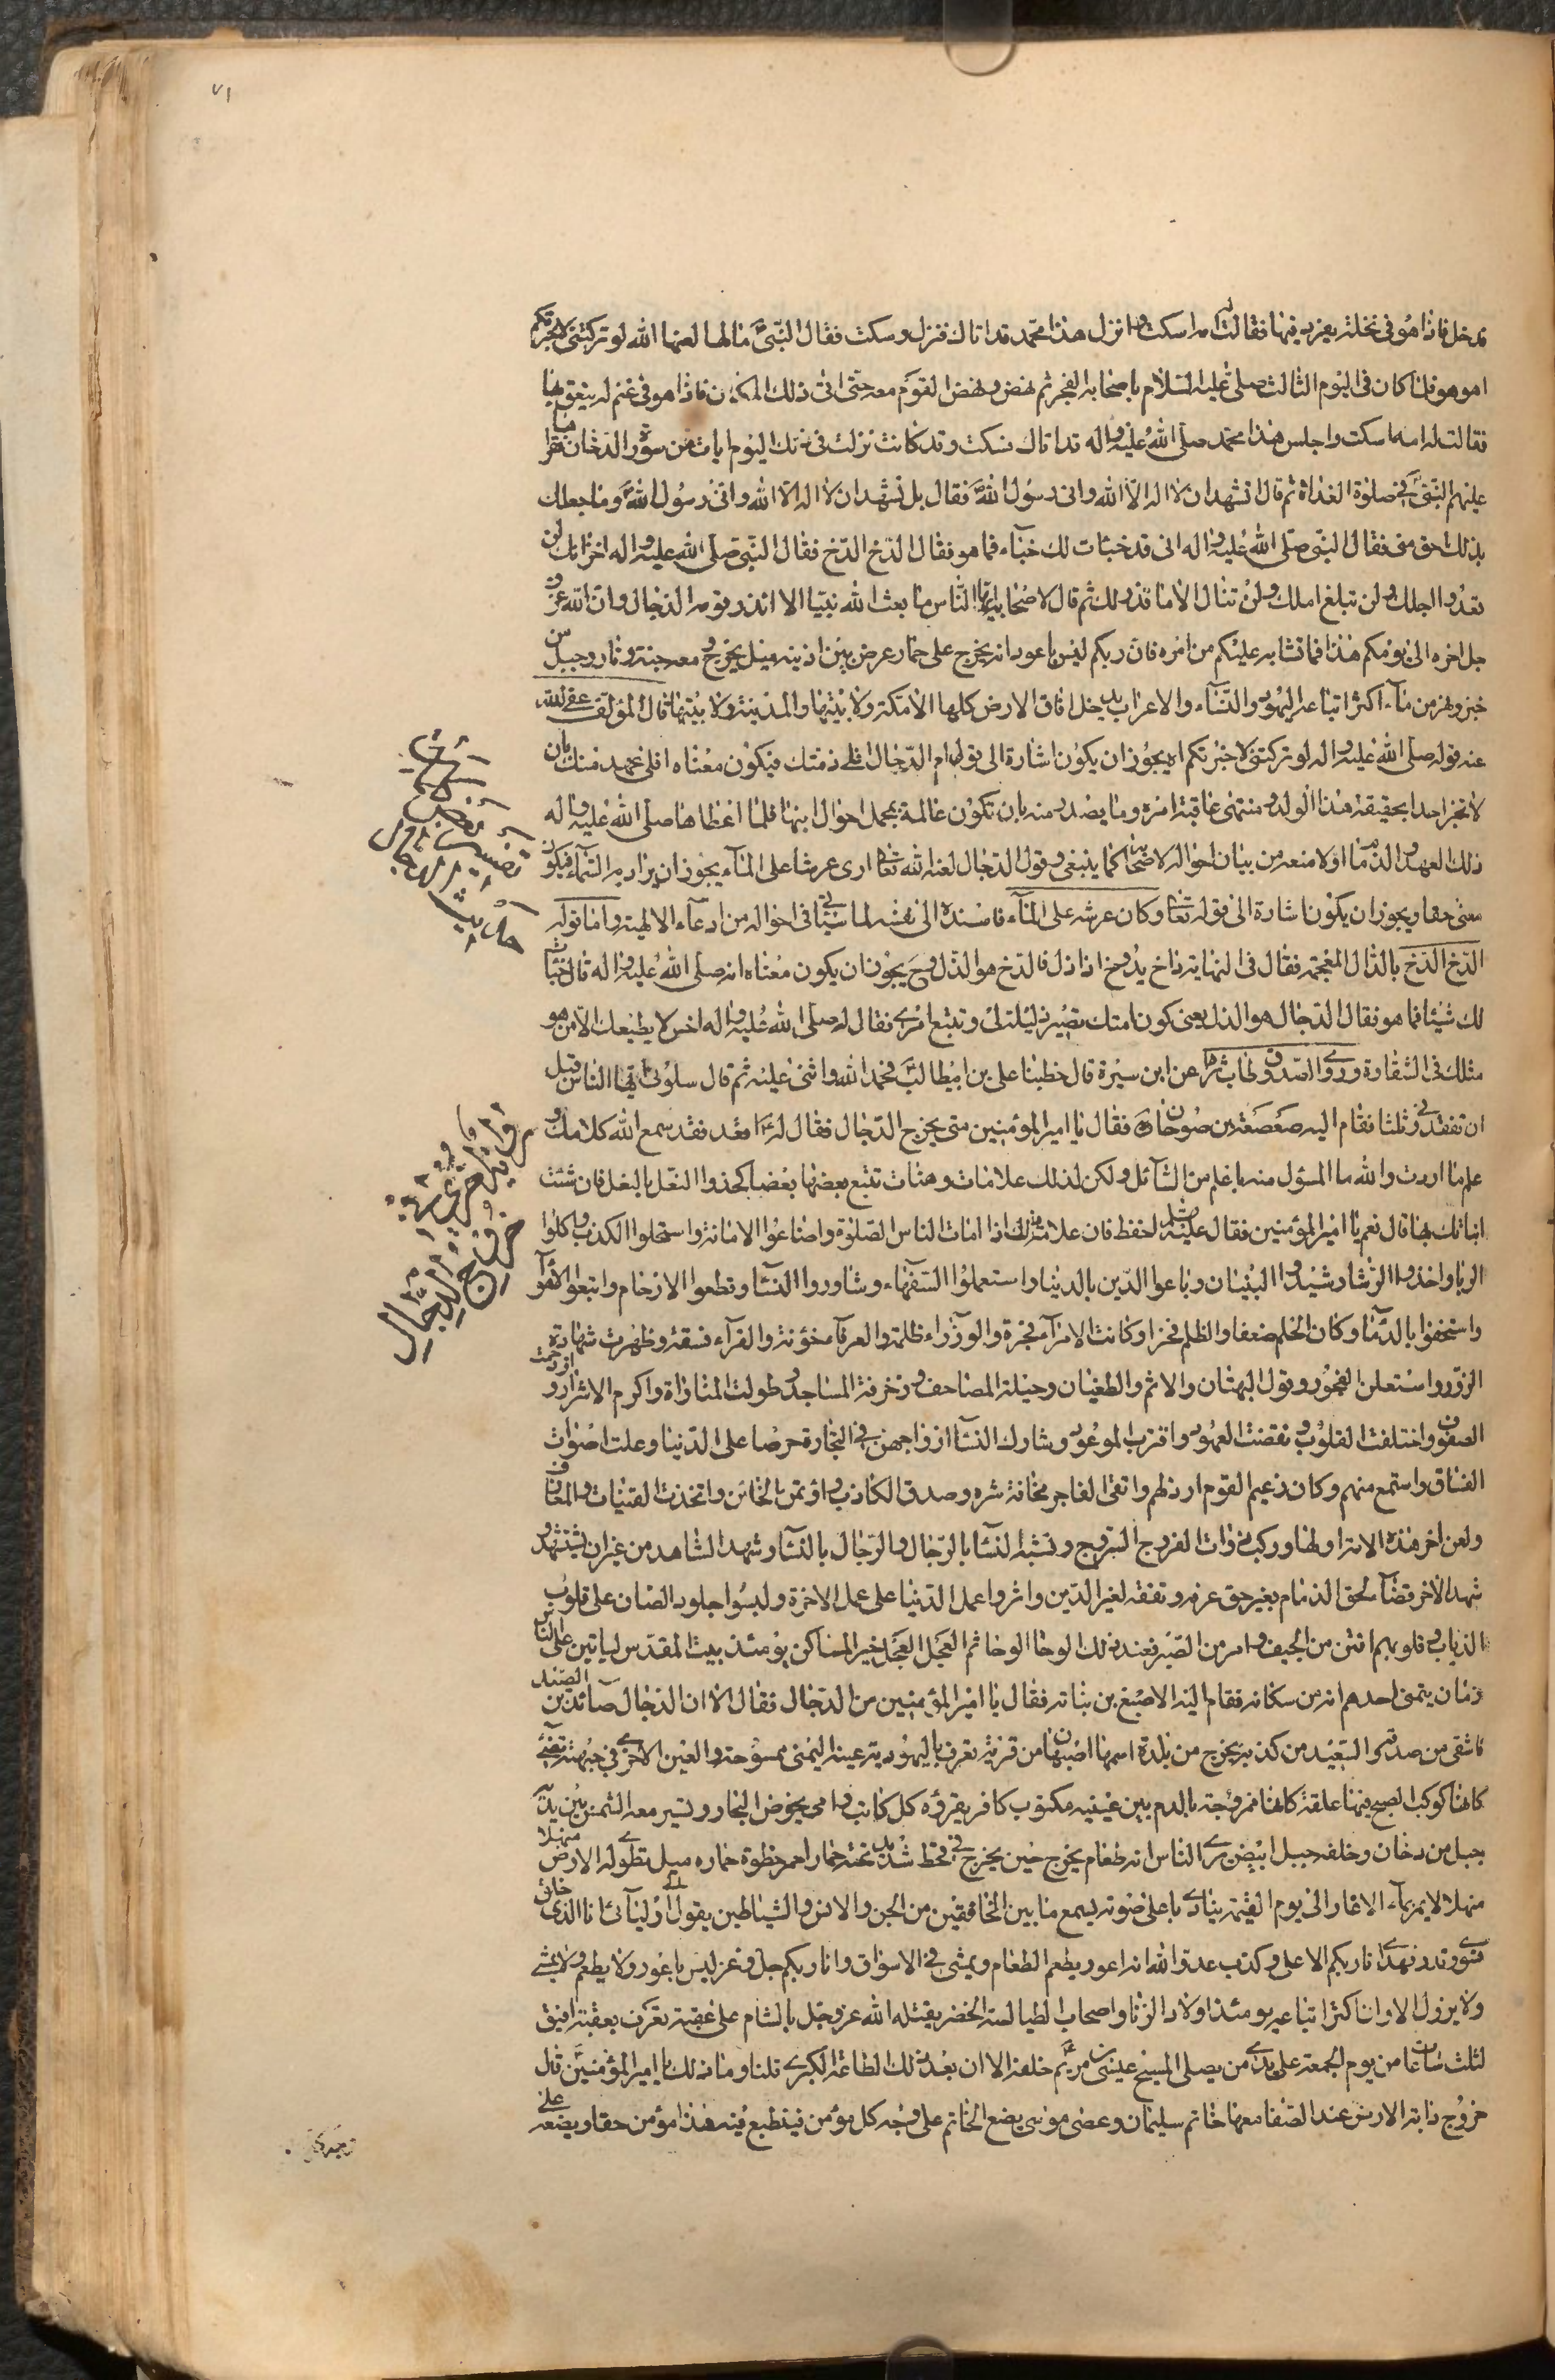 ٧١
فدخل فاذا هو فى نخلة يغرد فيها فقالت له امه اسكت وانزل هذا محمد قد اتاك فنزل وسكت فقال النبى ما لها لعنها الله لو تركتنى لاخبرتكم
اهو هو فلما كان فى اليوم الثالث صلى عليه السلام باصحابه الفجر ثم نهض ونهض القوم معه حتى اتى ذلك المكان فاذا هو فى غنم له ينعق بها
فقالت له امه اسكت واجلس هذا محمد صلى الله عليه واله قد اتاك فسكت وقد كانت نزلت فى ذلك اليوم ايات من سورة الدخان فقرأ
عليهم النبى فى صلوة الغداة ثم قال اتشهد ان لا اله الا الله وانى رسول الله فقال بل تشهد ان لا اله الا الله وانى رسول الله وما جعلك
بذلك احق منى فقال النبى صلى الله عليه واله انى قد خبئات لك خبآء فما هو فقال الدخ الدخ فقال النبى صلى الله عليه واله اخسأ فانك لن
تعدوا اجلك ولن تبلغ املك ولن تنال الا ما قدر لك ثم قال لاصحابه ايها الناس ما بعث الله نبيا الا انذر قومه الدجال وان الله عز و
جل اخره الى يومكم هذا فما تشابه عليكم من امره فان ربكم ليس باعور انه يخرج على حمار عرض بين اذنيه ميل يخرج ومعه جنة ونار وجبل من
خبز ونهر من مآء اكثر اتباعه اليهود والنسآء والاعراب يدخل افاق الارض كلها الا مكة ولابتيها والمدينة ولابتيها قال المؤلف عفى الله
عنه قوله صلى الله عليه واله لو تركتنى لاخبرتكم اه يجوز ان يكون اشارة الى قول ام الدجال افلى ذمتك فيكون معناه افلى عهد منك بان
لا تخبر احدا بحقيقة هذا الولد ومنتهى عاقبة امره وما يصدر منه بان تكون عالمة بمجمل احوال ابنها فلما اعطاها صلى الله عليه واله
ذلك العهد والذمام اولا منعه من بيان احواله لاصحابه كما ينبغى وقول الدجال لعنه الله تعالى ارى عرشا على المآء يجوز ان يراد به السمآء فيكون
معنى حقا ويجوز ان يكون اشارة الى قوله تعالى وكان عرشه على المآء فاسنده الى نفسه لما سيأتى فى احواله من ادعآء الالهية واما قوله
الدخ الدخ بالذال المعجمة فقال فى النهاية ذاخ يذوخ اذا ذل فالدخ هو الذل وح يجوز ان يكون معناه انه صلى الله عليه واله قال خبئات
لك شيئا فما هو فقال الدجال هو الذل يعنى كون امتك تصير ذليلة لى وتتبع امرى فقال له صلى الله عليه واله اخس لا يطيعك الا من هو
مثلك فى الشقاوة وروى الصدوق طاب ثراه عن ابن سيرة قال خطبنا على بن ابيطالب فحمد الله واثنى عليه ثم قال سلونى ايها الناس قبل
ان تفقدونى ثلثا فقام اليه صعصعة بن صوحان فقال يا امير المؤمنين متى يخرج الدجال فقال له اقعد فقد سمع الله كلامك و
علم ما اردت والله ما المسؤل منه باعلم من السآئل ولكن لذلك علامات وهنات تتبع بعضها بعضا كحذوا النعل بالنعل فان شئت
انباتك بها قال نعم يا امير المؤمنين فقال عليه السلام احفظ فان علامة ذلك اذا امات الناس الصلوة واضاعوا الامانة واستحلوا الكذب واكلوا
الربا واخذوا الرشا وشيدوا البنيان وباعوا الدين بالدنيا واستعملوا السفهاء وشاوروا النسآ وقطعوا الارحام واتبعوا الاهوآ
واستخفوا بالدمآ وكان الحلم ضعفا والظلم فخرا وكانت الامرآء فجرة والوزراء ظلمة والعرفآ خونة والقرآء فسقة وظهرت شهادة
الزور واستعلن الفجور وقول البهتان والاثم والطغيان وحيلة المصاحف وزخرفة المساجد وطولت المنارة واكرم الاشرار وازدحمت
الصفوف واختلفت القلوب ونقضت العهود واقترب الموعود وشارك النسآ ازواجهن فى التجارة حرصا على الدنيا وعلت اصوات
الفساق واستمع منهم وكان زعيم القوم ارذلهم واتقى الفاجر مخافة شره وصدق الكاذب واؤتمن الخائن واتخذت القينات والمعازف
ولعن اخر هذه الامة اولها وركب ذوات الفروج السروج وتشبه النسآ بالرجال والرجال بالنسآ وشهد الشاهد من غير ان يستشهد و
شهد الاخر قضآء لحق الذمام بغير حق عرفه وتفقه لغير الدين واثروا عمل الدنيا على عمل الاخرة ولبسوا جلود الضان على قلوب
الذياب وقلوبهم انتن من الجيف وامر من الصبر فعند ذلك الوحا الوحا ثم العجل العجل خير المساكن يومئذ بيت المقدس لياتين على الناس
زمان يتمنى احدهم انه من سكانه فقام اليه الاصبغ بن نباته فقال يا امير المؤمنين من الدجال فقال الا ان الدجال صآئد بن الصيد
فاشقى من صدقه والسعيد من كذبه يخرج من بلدة اسمها اصبهان من قرية تعرف باليهودية عينه اليمنى ممسوحة والعين الاخرى فى جبهته تضئ
كانها كوكب الصبح فيها علقة كانها ممزوجة بالدم بين عينيه مكتوب كافر يقرؤه كل كاتب وامى يخوض البحار وتسير معه الشمس بين يديه
جبل من دخان وخلفه جبل ابيض يرى الناس انه طعام يخرج حين يخرج فى قحط شديد تحته حمار احمر خطوة حماره ميل تطوى له الارض منهلا
منهلا لا يمر بمآء الا غار الى يوم القيمة ينادى باعلى صوته يسمع ما بين الخافقين من الجن والانس والشياطين يقول الى اوليآئى انا الذى خلق
فسوى وقدر فهدى انا ربكم الاعلى وكذب عدو الله انه اعور يطعم الطعام ويمشى فى الاسواق وان ربكم جل وعز ليس باعور ولا يطعم ولا يمشى
ولا يزول الا وان اكثر اتباعه يومئذ اولاد الزنا واصحاب الطيالسة الخضر يقتله الله عز وجل بالشام على عقبة تعرف بعقبة افيق
لثلث ساعات من يوم الجمعة على يدى من يصلى المسيح عيسى بن مريم خلفه الا ان بعد ذلك الطامة الكبرى قلنا وما ذلك يا امير المؤمنين قال
خروج دابة الارض عند الصفا معها خاتم سليمان وعصى موسى يضع الخاتم على وجه كل مؤمن فينطبع فيه هذا مؤمن حقا ويضعه على
خروج الدجال